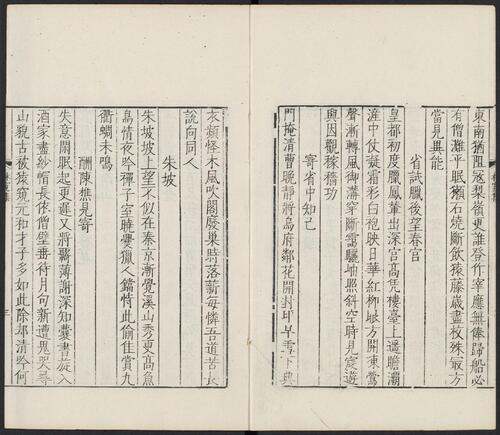 東南猶阻寇梨嶺更誰登作宰應無俸歸船必
有僧灘平眠獺石燒斷飲猿藤歲盡枚殊冣方
當見異能
省試臘後望春宮
皇都初度臘鳳輦出深宮髙凭樓臺上遥瞻灞
滻中仗凝霜彩白袍映日華紅柳眼方開東鶯
聲漸轉風御溝穿斷靄驪岫照斜空時見宸遊
興因觀稼穡功
寄省中知己
門掩清曹晚靜將烏府鄰花開封印早雪下典
衣頻怪木風吹閣廢巢時落薪每憐吾道苦長
說向同人
朱坡
朱坡坡上望不似在秦京漸覺溪山秀更髙魚
鳥情夜吟禪子室曉爨獵人鐺恃此偷佳賞九
衢蜩未鳴
酬陳樵見寄
失意閑眠起更遲又將羈薄謝深知囊書旋入
酒家盡紗帽長依僧壁垂待月句新遭鬼哭尋
山貌古被猿窺元和才子多如此除却清吟何